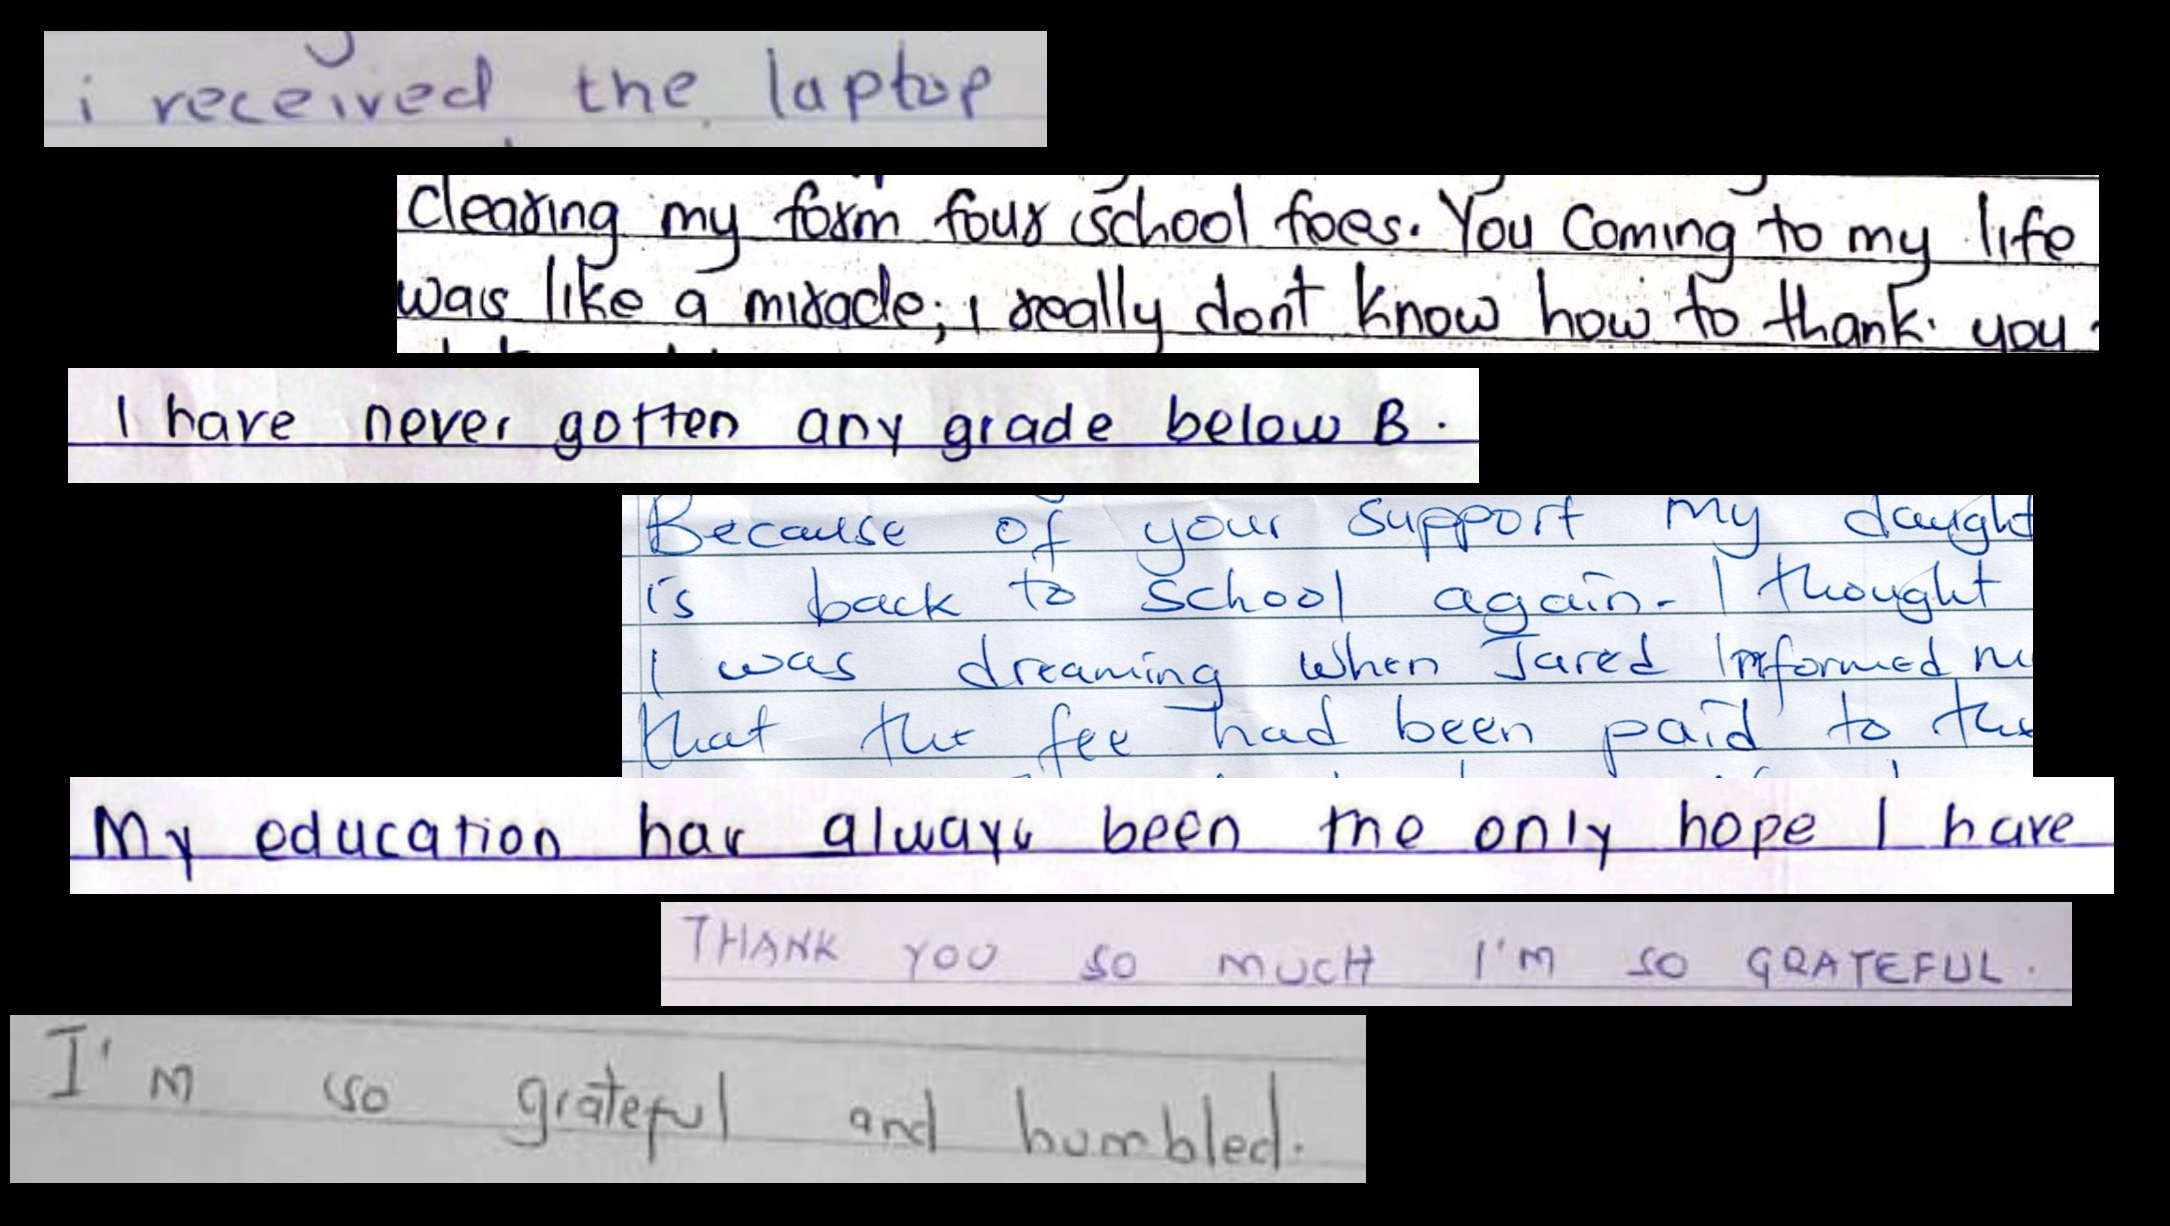 i received the laptop
Clearing my form four school fees. You Coming to my life
was like a miracle; i really dont know how to thank you.
I have never gotten any grade below B.
Because of your support my daught
is back to school again. I thought
I was dreaming when Jared Informed
that the fee had been paid to the
My education has always been the only hope I have
THANK YOU SO MUCH I'M SO GRATEFUL.
I'm so grateful and humbled.